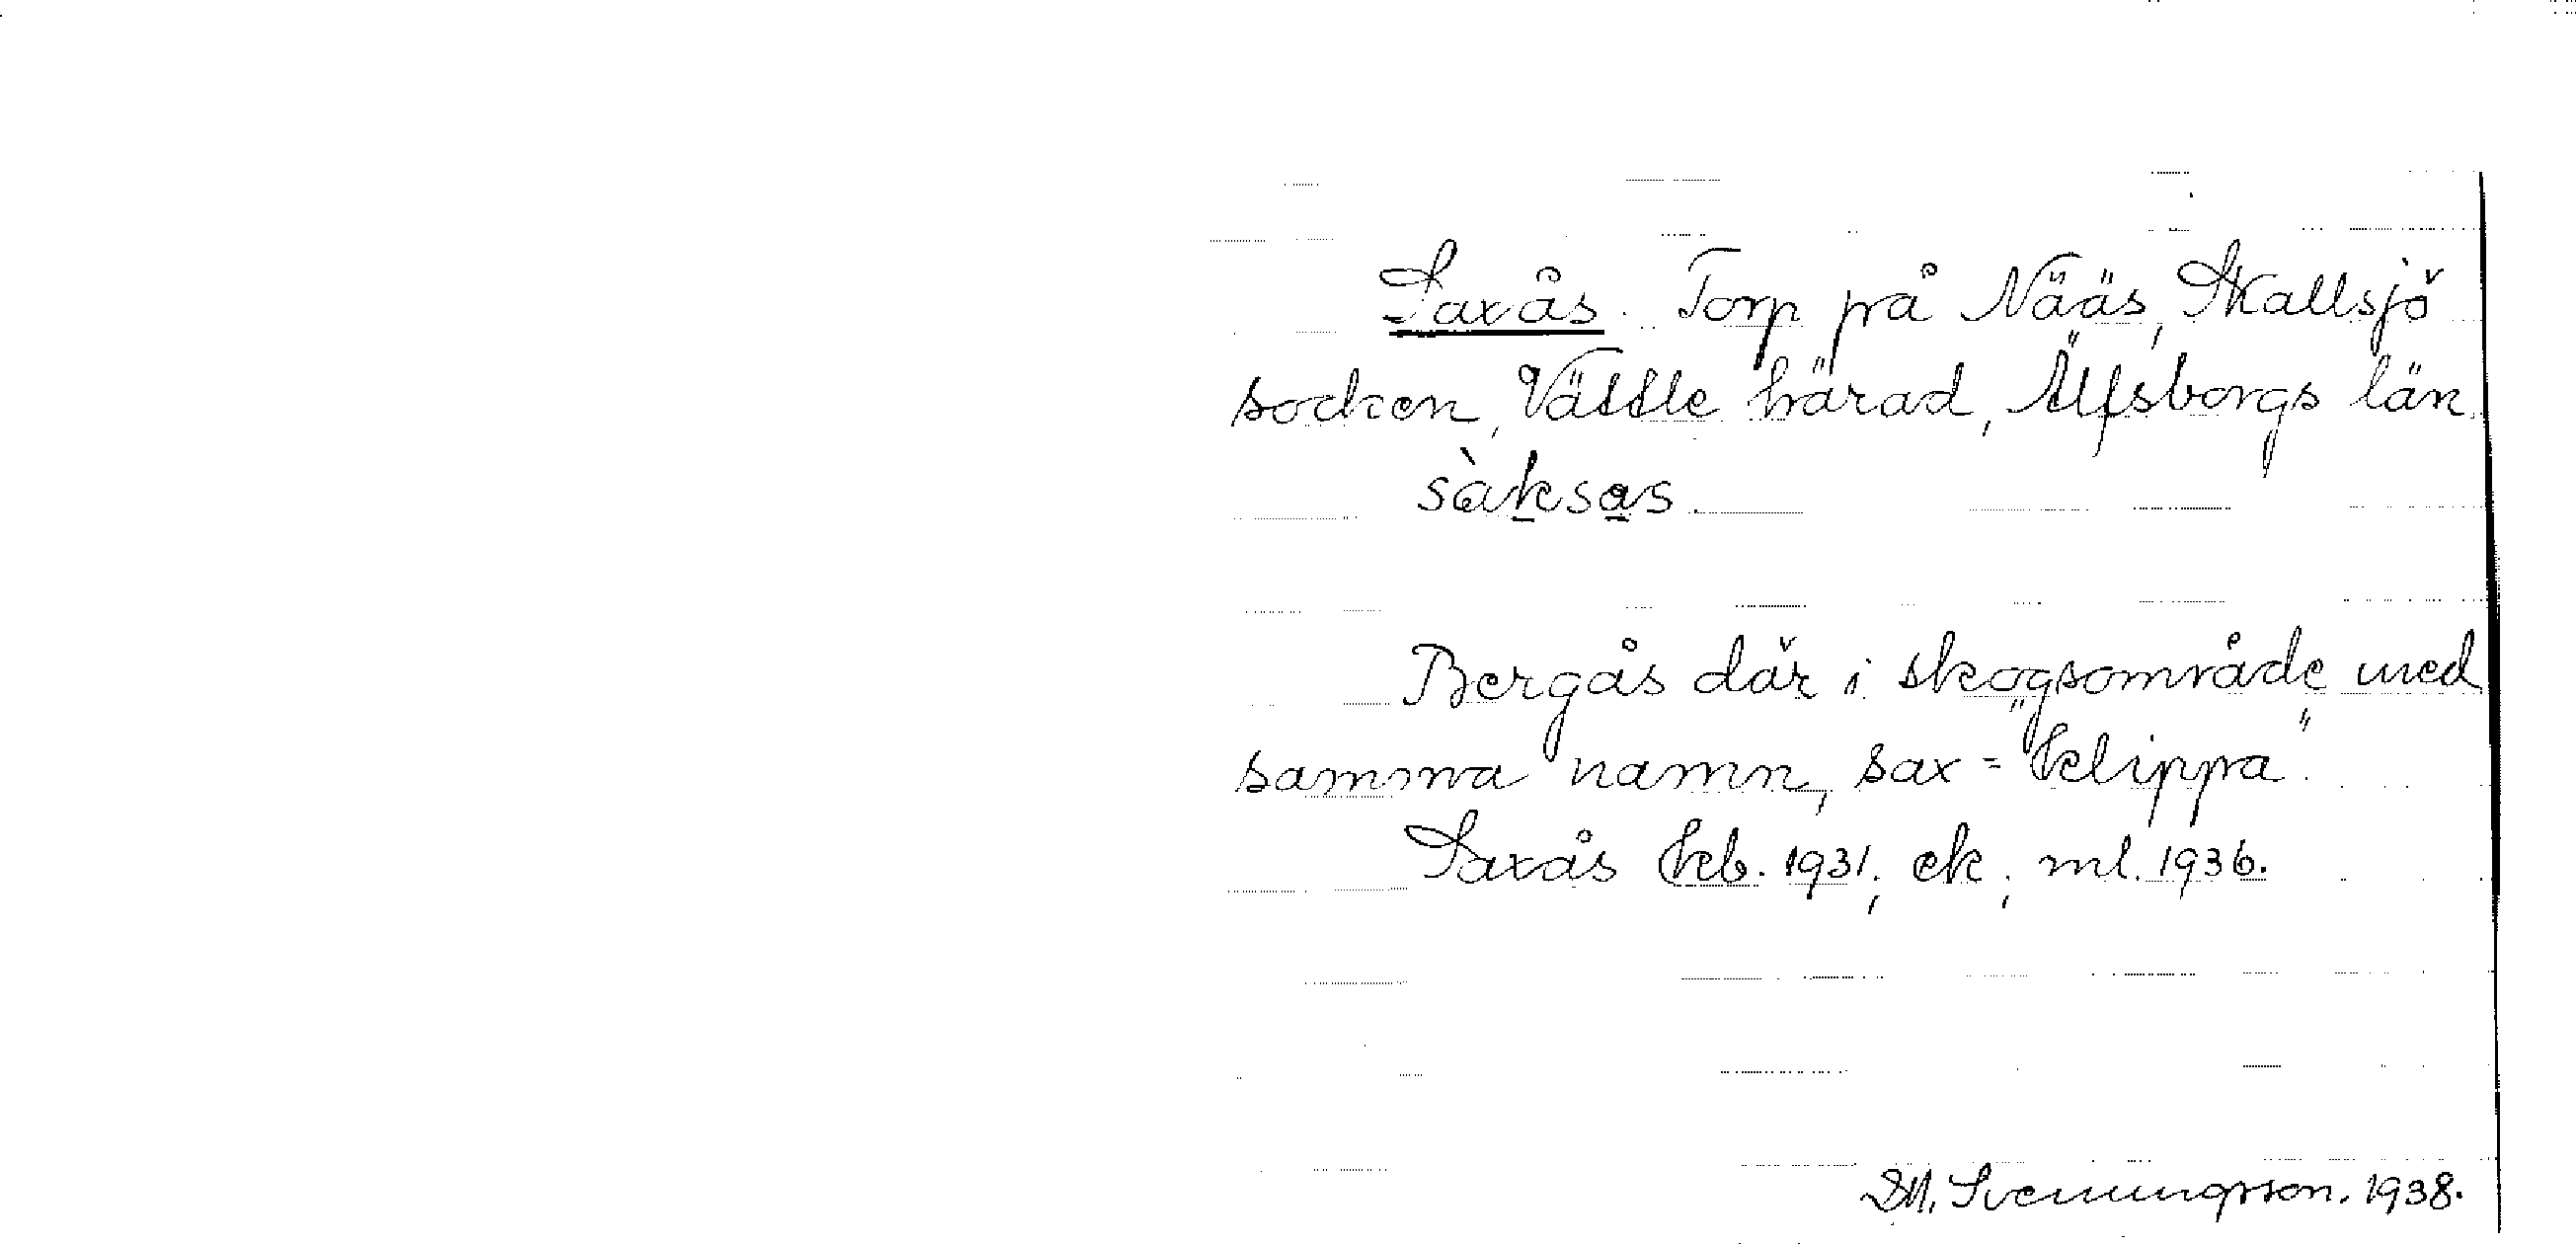 Saxås. Torp på Nääs, Skallsjö
socken, Vättle härad, Älfsborgs län.
sàksas
Bergås där i skogsområde med
samma namn, sax = "klippa".
Saxås kb. 1931, ek, ml. 1936.
D.M. Svenungsson. 1938.